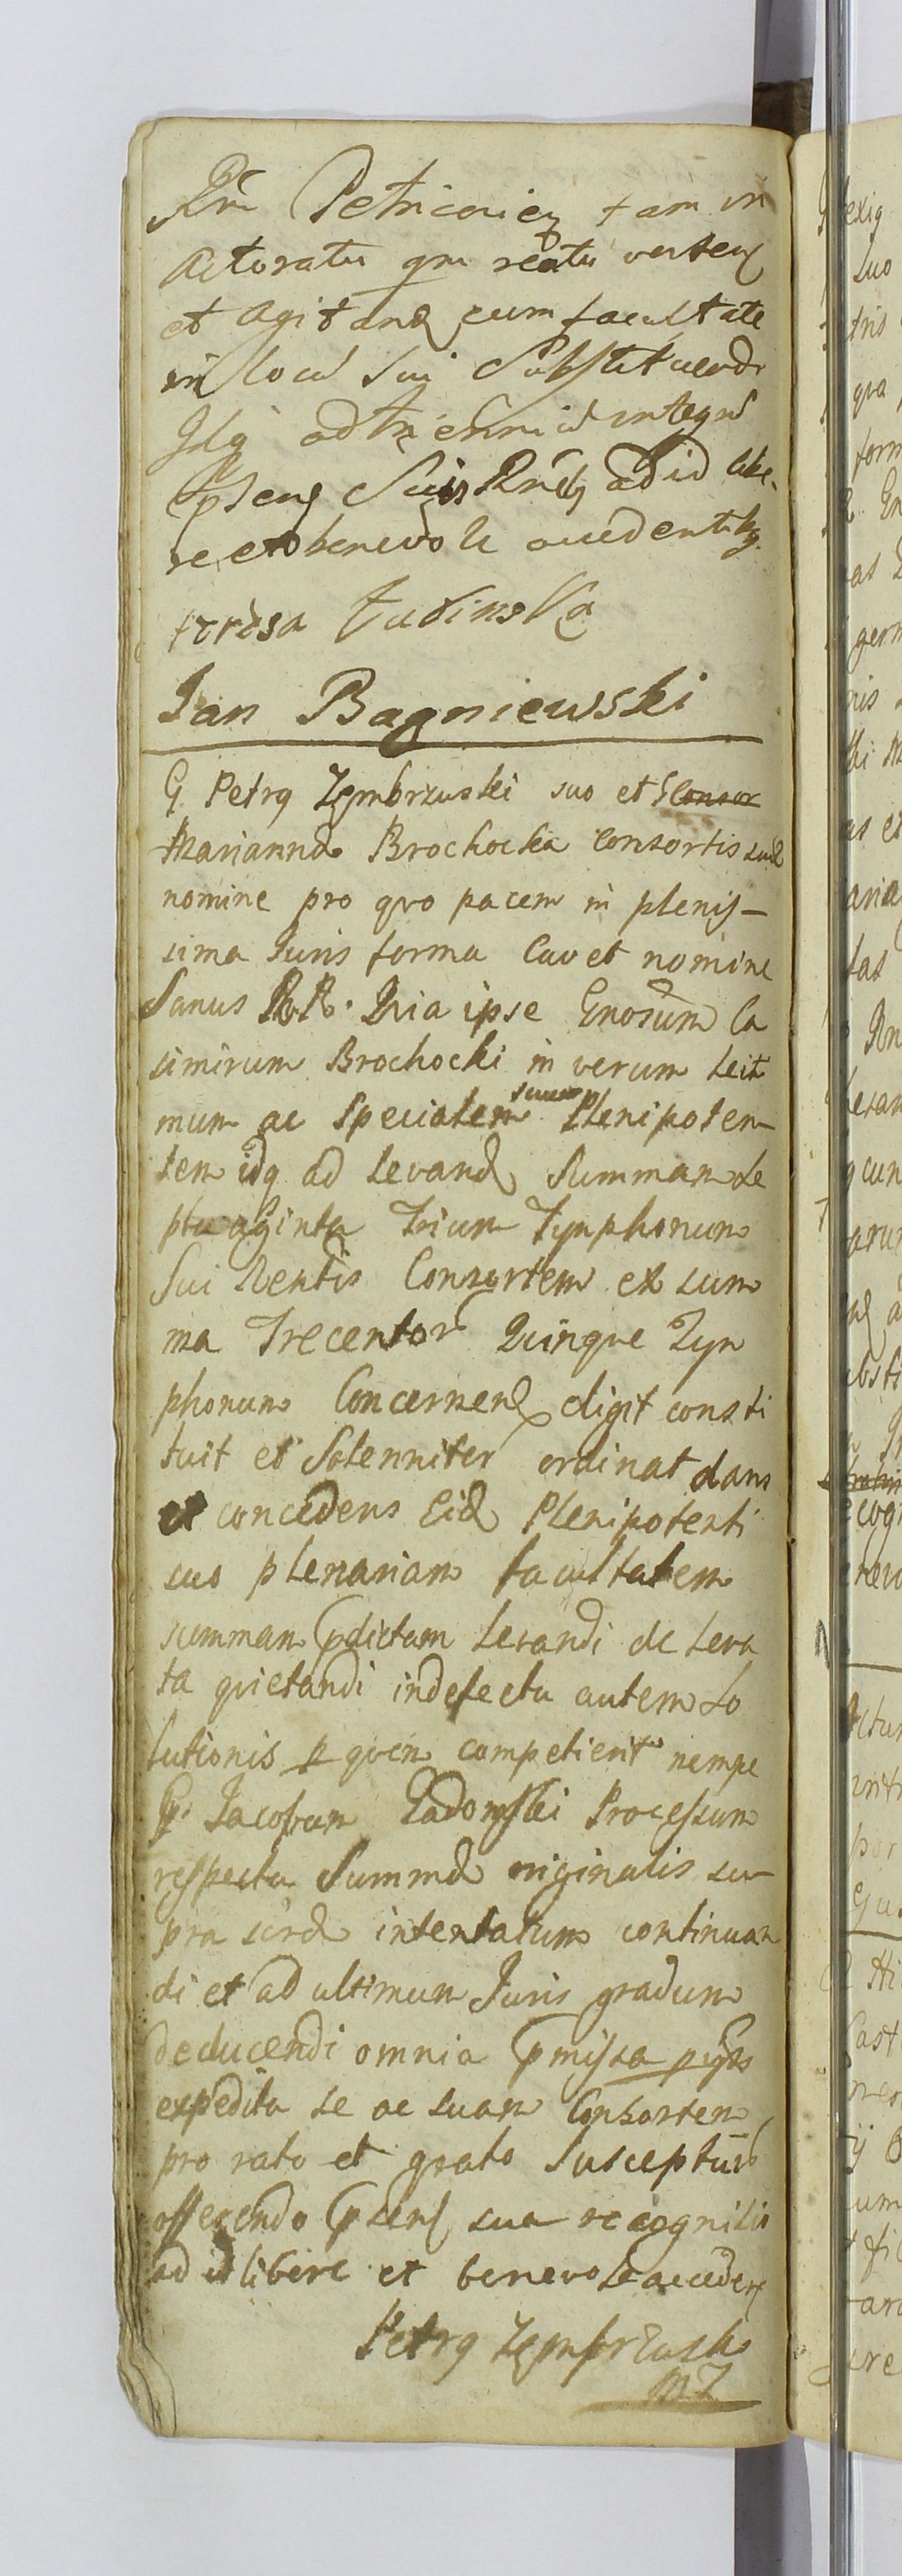 Petricovien tam in
Actoratu qm reatu verten
et Agitand cum facultate
in locu sui Substituendi
Idq ad triennium integru
Pnsen Suis Rnibq ad id libe-
re et benevole accedentibq.
teresa
Jan Bagniewski
G Petrq Zembrzuski suo et Gconsor
Mariannæ Brochocka Consortis suæ
nomine pro qvo pacem in plenis-
sima Iuris forma Cavet nomine
Sanus Qvia ipse Gnosum Ca
simirum Brochocki in verum Leit
mum ac Specialem suum Plenipoten
tem idq ad Levand Summam Se
ptuaginta Trium Tynphonum
Sui Rentis Consortem ex sum
ma Trecentor Quinque Tyn
phonum Concernen eligit consti
tuit et Solenniter ordinat dans
et concedens Eid Plenipotenti
suo plenariam facultatem
summam pdictam Levandi de Leva
ta quietandi in defectu autem So
lutionis p quem competierit nempe
G. Jacobum Zadomski Processum
respectu Summæ originalis su
pra scrd intentatum continuan
di et ad ultimum Iuris gradum
deducendi omnia pmissa
expedita se ac suam Consortem
pro rato et grato Suscepturu
offerendo psen sua recognitio
ad id libere et benevole acceden
Petrq Zembrzuski
mp